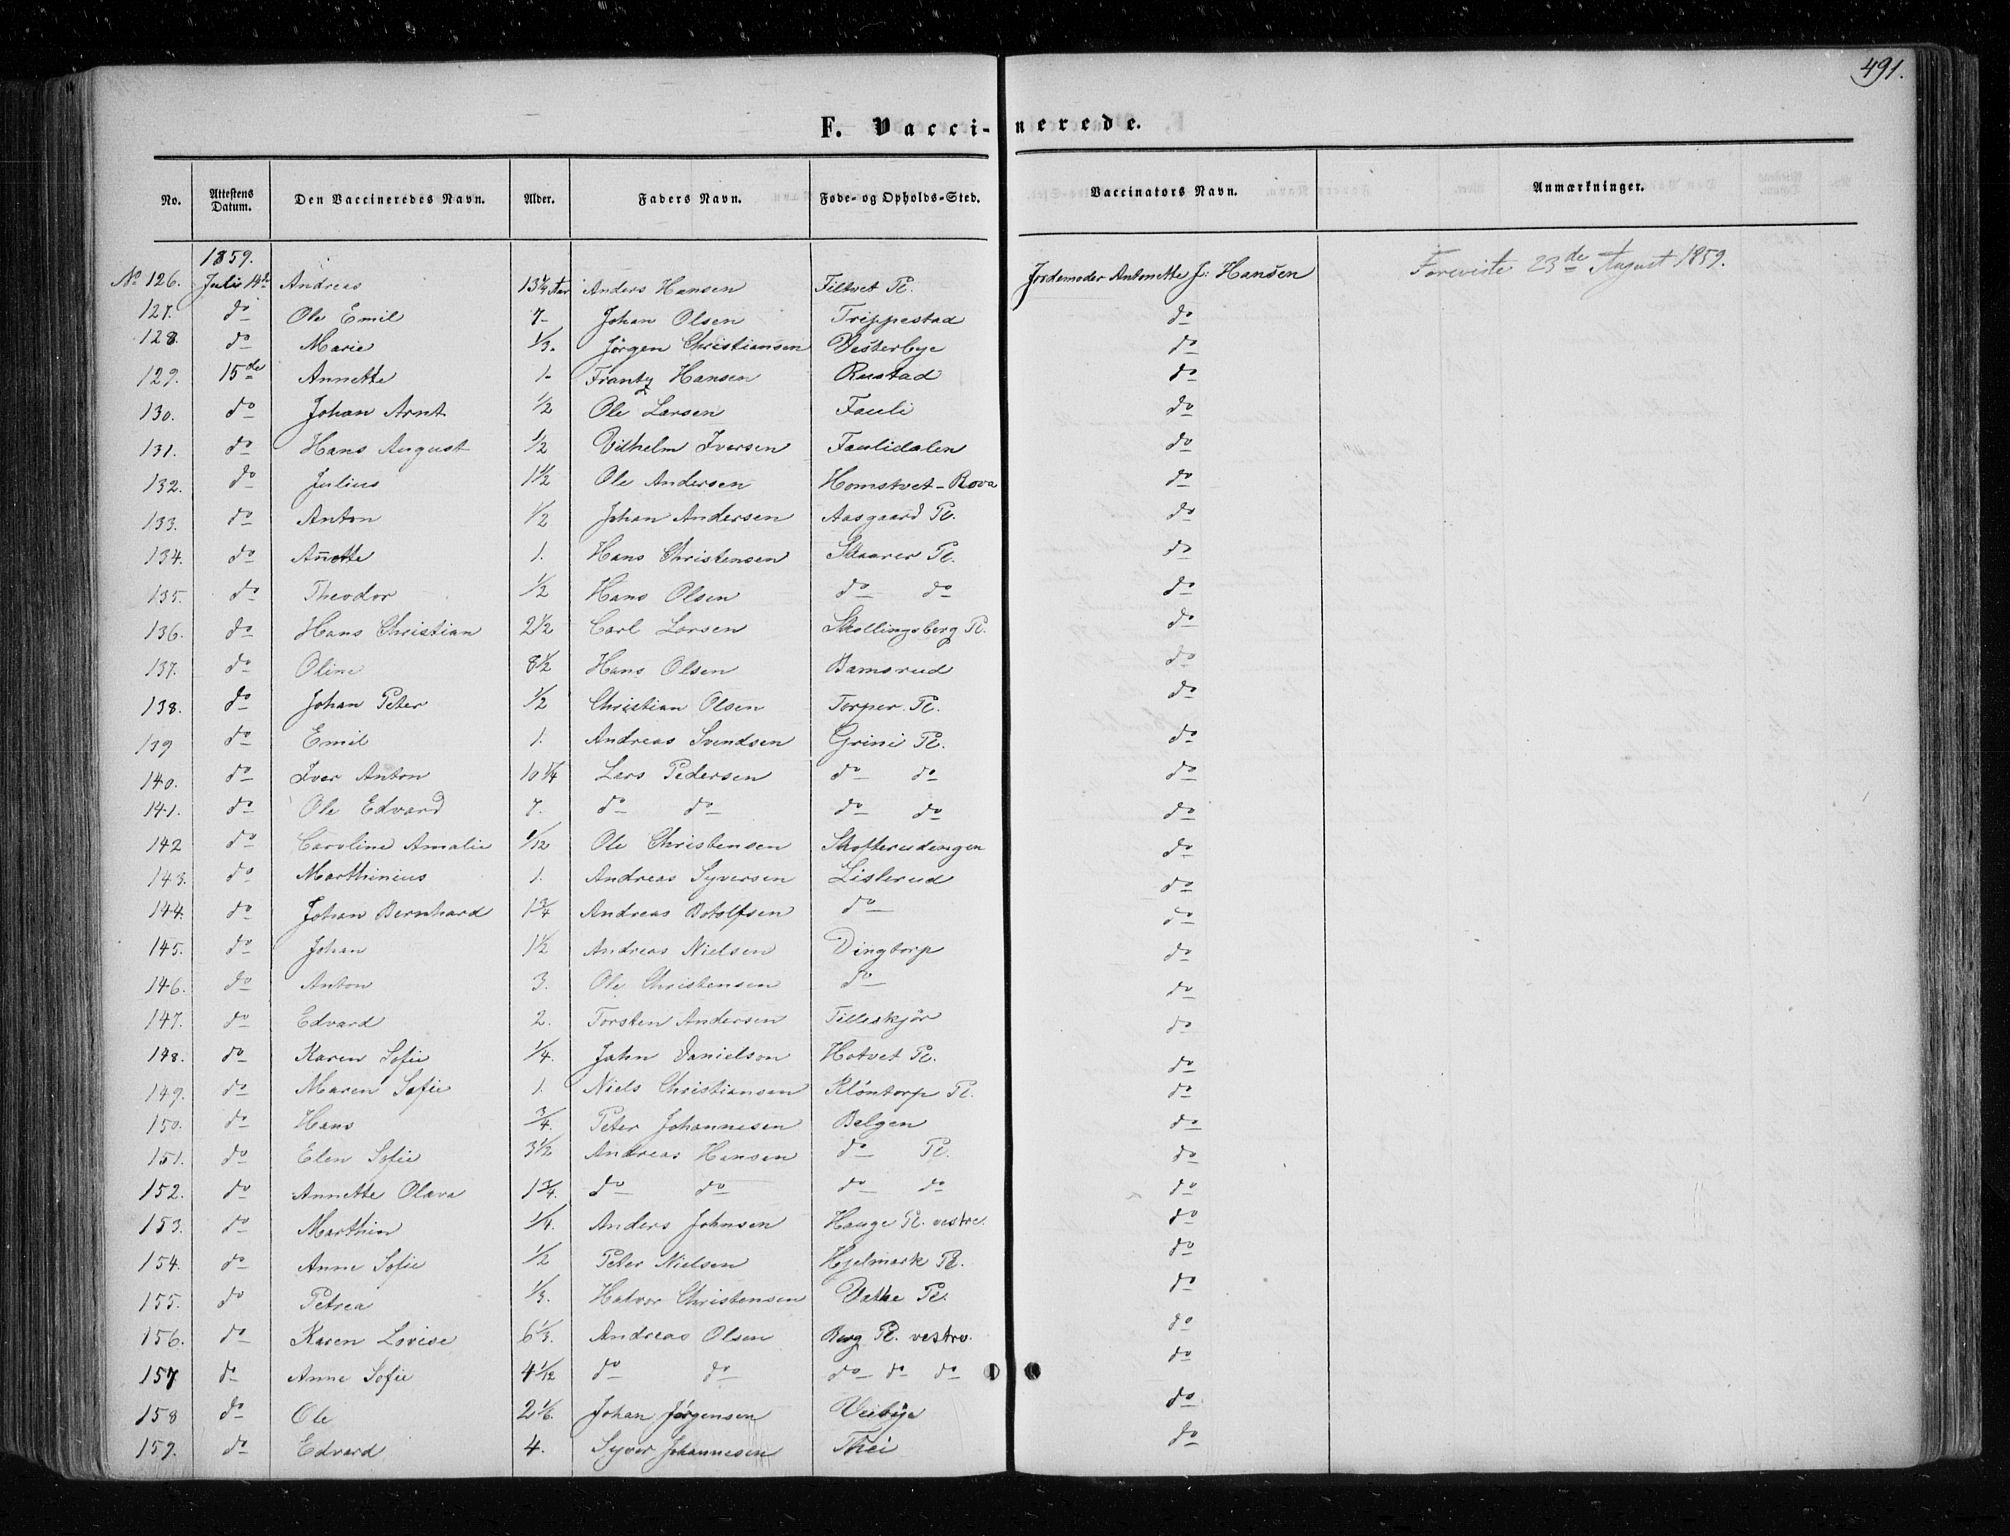 491.
F. Vaccinerede.
No. Attestens Datum. Den Vaccineredes Navn. Alder. Faders Navn. Føde- og Opholds-Sted. Vaccinators Navn. Anmærkninger.
1859.
No 126. Julis 14de Andreas 13¼ Aar Anders Hansen Filtvet Pl. Jordemoder Antonette J: Hansen Foreviste 23de August 1859.
127. do Ole Emil 7- Johan Olsen Trippestad do
128. do Marie 1/3. Jørgen Christiansen Vesterbye do
129. 15de Annette 1- Frantz Hansen Rustad do
130. do Johan Arnt 1/2 Ole Larsen Fauli do
131. do Hans August 1/2 Vilhelm Iversen Faulidalen do
132. do Julius 1½ Ole Andersen Homstvet-Rova do
133. do Anton 1/2 Johan Andersen Aasgaard Pl. do
134. do Añette 1. Hans Christensen Skaarer Pl. do
135. do Theodor 1/2 Hans Olsen do do do
136. do Hans Christian 2½ Carl Larsen Skollingsberg Pl. do
137. do Oline 8½ Hans Olsen Bamsrud do
138. do Johan Peter 1/2 Christian Olsen Torper Pl. do
139 do Emil 1. Andreas Svendsen Grini Pl. do
140. do Iver Anton 10¼ Lars Pedersen do do do
141. do Ole Edvard 7. do do do do do
142 do Caroline Amalie 1/12 Ole Christensen Skofterudengen do
143. do Marthinius 1. Andreas Syversen Listerud do
144. do Johan Bernhard 1¾ Andreas Botolfsen do do
145. do Johan 1½ Andreas Nielsen Dingtorp do
146. do Anton 3. Ole Christensen do do
147. do Edvard 2. Torsten Andersen Tilleskjør do
148. do Karen Sofie 1/4. John Danielson Hotvet Pl. do
149. do Maren Sofie 1. Niels Christiansen Kløntorp Pl. do
150. do Hans 3/4. Peter Johannesen Belgen do
151. do Elen Sofie 3½ Andreas Hansen do Pl. do
152. do Annette Olava 1¾. do do do do do
153. do Marthin 1/4. Anders Johnsen Hauge Pl. vestre. do
154. do Anne Sofie 1/2 Peter Nielsen Hjelmark Pl. do
155. do Petrea 1/3. Halvor Christensen Vatke Pl. do
156. do Karen Lovise 6⅓. Andreas Olsen Berg Pl. vestre. do
157 do Anne Sofie 4 1/12 do do do do do do
158 do Ole 2 1/6. Johan Jørgensen Veibye do
159. do Edvard 4. Syver Johannesen Thei do